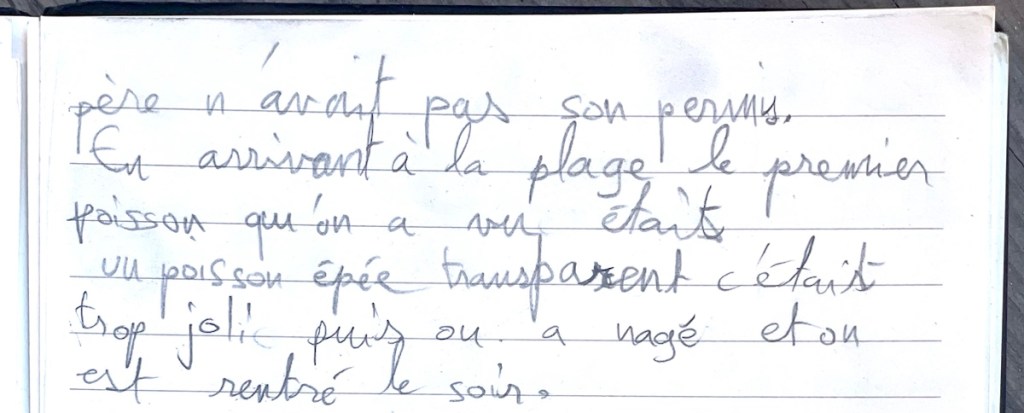 père n'avait pas son permis.
En arrivant à la plage le premier
poisson qu'on a vu était
un poisson épée transparent c'était
trop joli puis on a nagé et on
est rentré le soir.